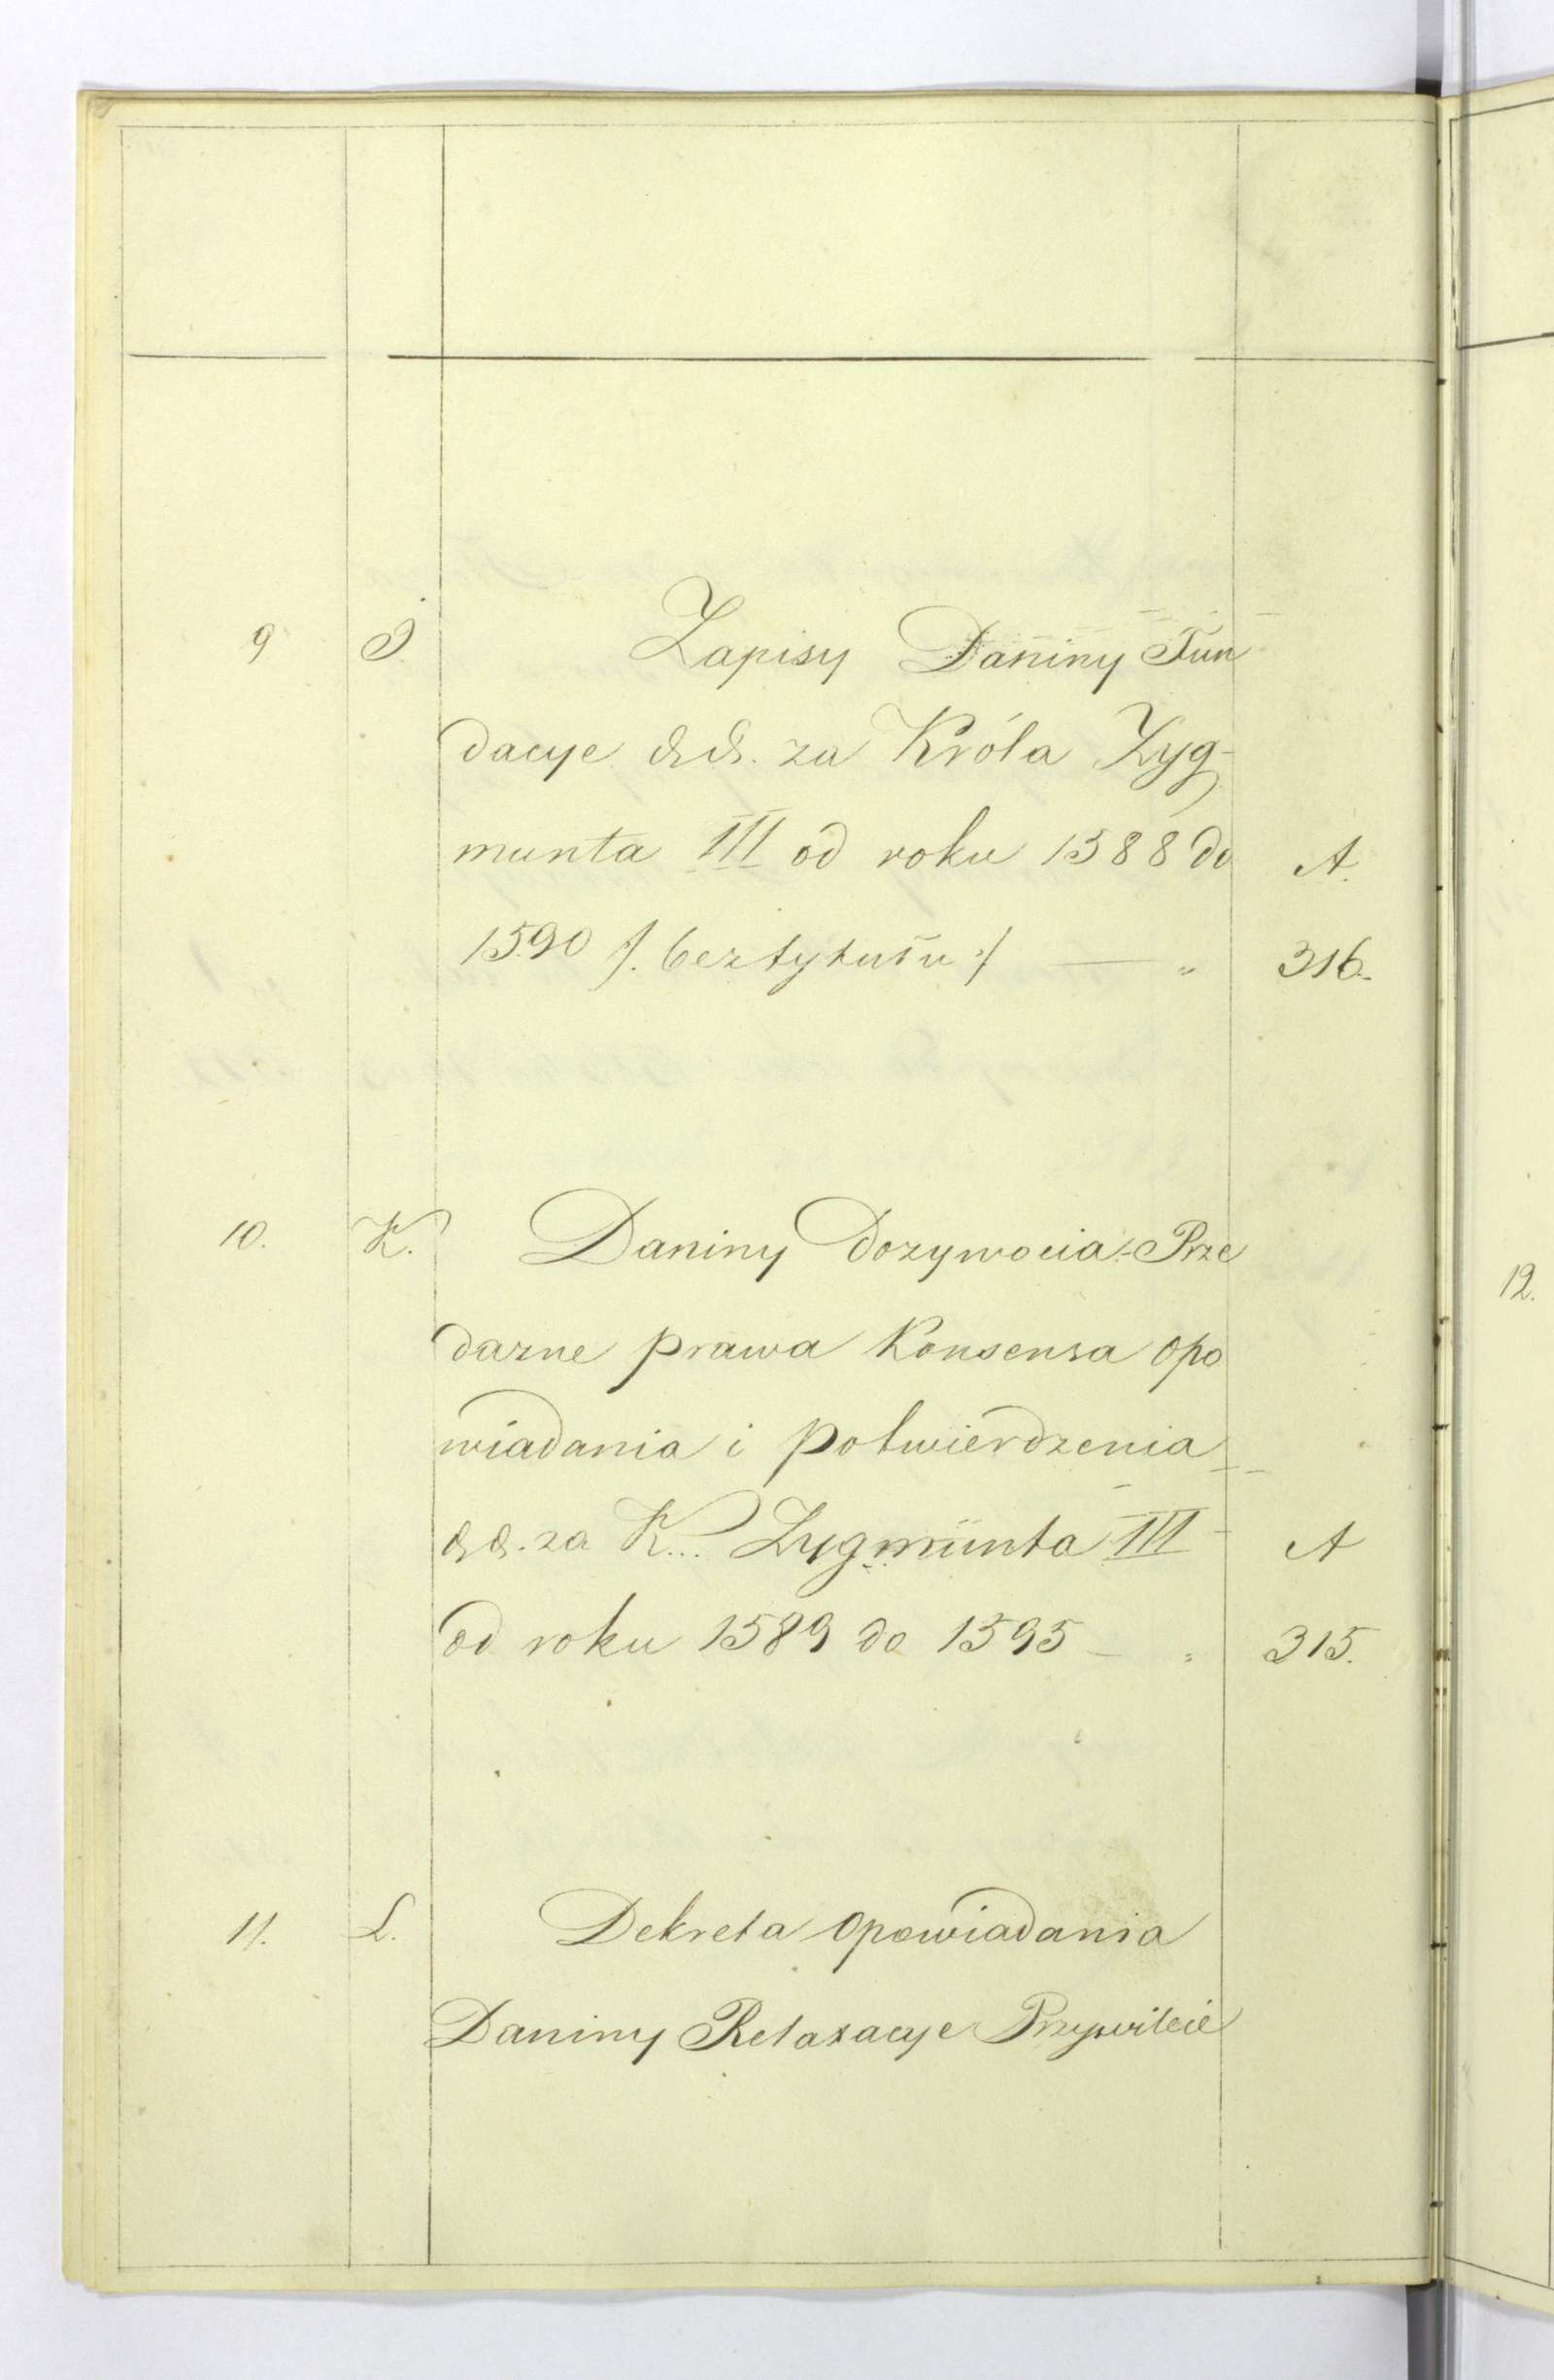 9 J. Zapisy Daniny Fun
dacye &&. za Króla Zyg-
munta III od roku 1588 do A.
1590 /. bez tytułu ./ — " 316.
10. K. Daniny Dozywocia - Prze
dazne prawa Konsensa opo
wiadania i potwierdzenia
&&. za K... Zygmunta III A
od roku 1589 do 1595 — " 315.
11. L. Dekreta Opowiadania
Daniny Relaxacye Przywileie
12.